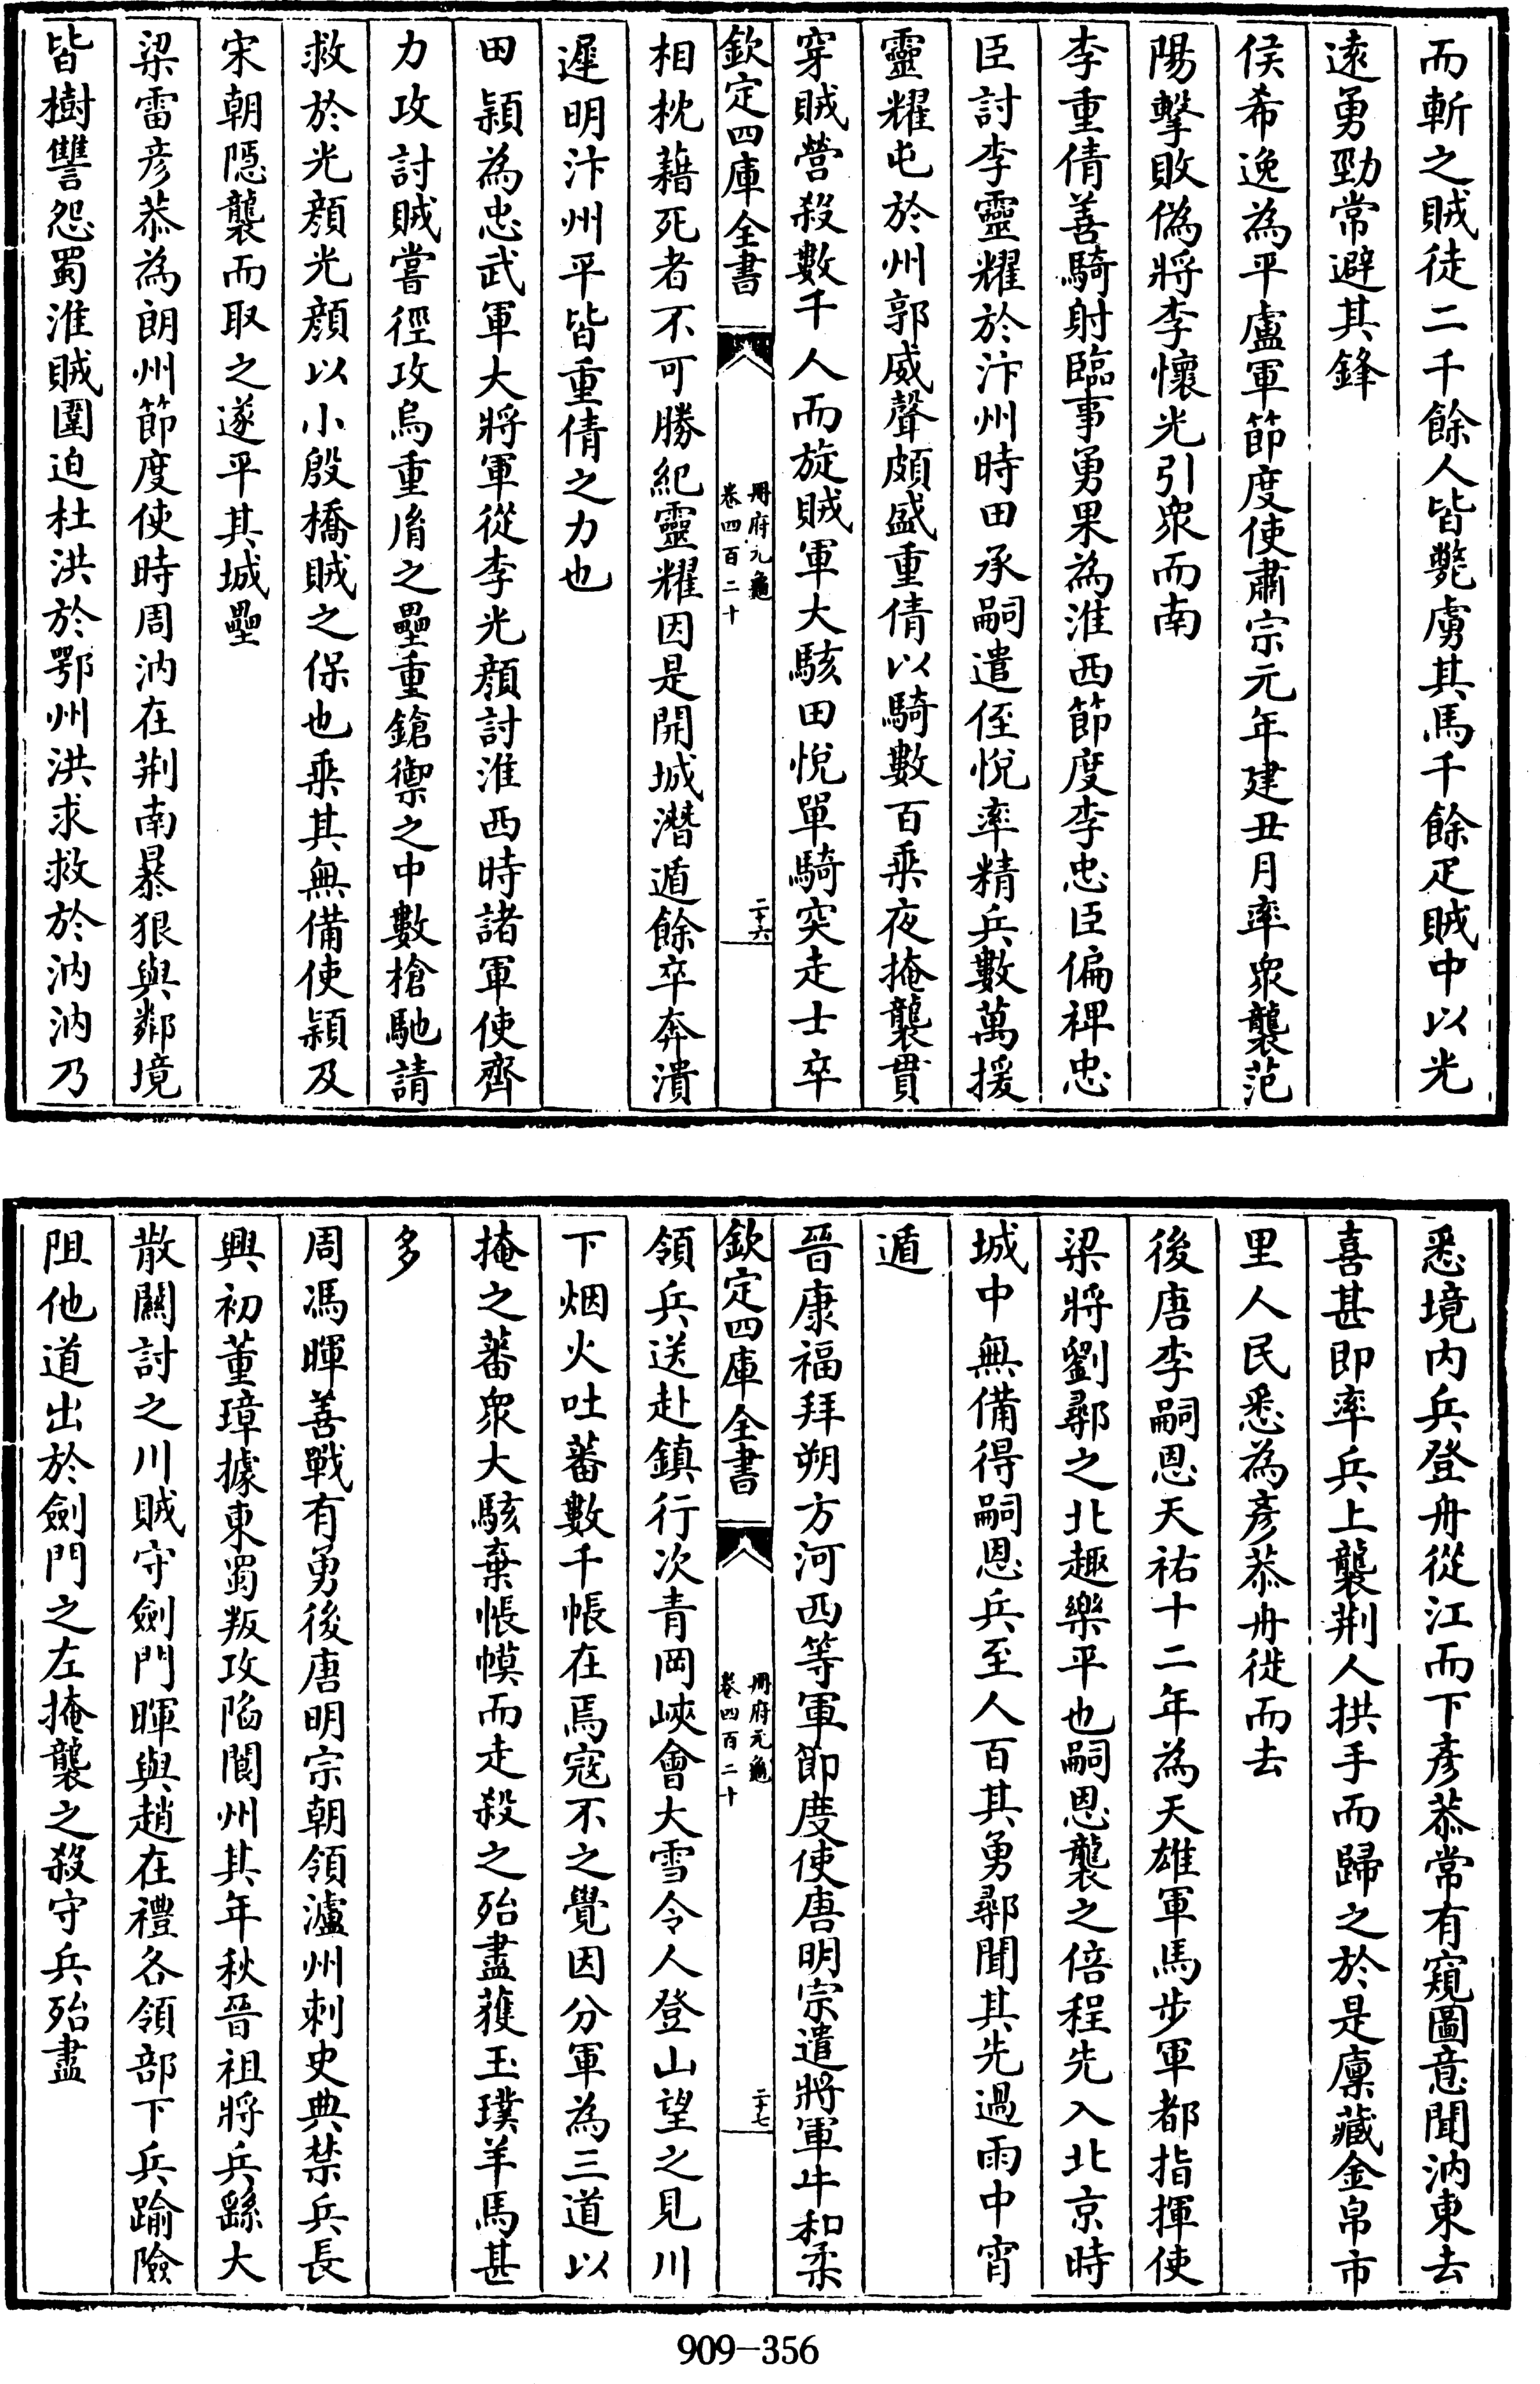 而斬之賊徒二千餘人皆斃虜其馬千餘疋賊中以光
遠勇勁常避其鋒
侯希逸為平盧軍節度使肅宗元年建丑月率衆襲范
陽擊敗偽將李懷光引衆而南
李重倩善騎射臨事勇果為淮西節度李忠臣偏裨忠
臣討李靈耀於汴州時田承嗣遣侄悅率精兵數萬援
靈耀屯於州郭威聲頗盛重倩以騎數百乗夜掩襲貫
穿賊營殺數千人而旋賊軍大駭田悅單騎突走士卒
欽定四庫全書
冊府元龜
卷四百二十
二十六
相枕藉死者不可勝紀靈耀因是開城潛遁餘卒奔潰
遲明汴州平皆重倩之力也
田穎為忠武軍大將軍從李光顔討淮西時諸軍使齊
力攻討賊嘗徑攻烏重胤之壘重鎗禦之中數槍馳請
救於光顔光顔以小殷橋賊之保也乗其無備使穎及
宋朝隱襲而取之遂平其城壘
梁雷彦恭為朗州節度使時周汭在荆南暴狠與鄰境
皆樹讐怨蜀淮賊圍迫杜洪於鄂州洪求救於汭汭乃
悉境内兵登舟從江而下彦恭常有窺圖意聞汭東去
喜甚即率兵上襲荆人拱手而歸之於是廩藏金帛市
里人民悉為彦恭舟徙而去
後唐李嗣恩天祐十二年為天雄軍馬步軍都指揮使
梁將劉鄩之北趣樂平也嗣恩襲之倍程先入北京時
城中無備得嗣恩兵至人百其勇鄩聞其先過雨中宵
遁
晉康福拜朔方河西等軍節度使唐明宗遣將軍牛和柔
欽定四庫全書
冊府元龜
卷四百二十
二十七
領兵送赴鎮行次青岡峽會大雪令人登山望之見川
下烟火吐蕃數千帳在焉寇不之覺因分軍為三道以
掩之蕃衆大駭棄帳幙而走殺之殆盡獲玉璞羊馬甚
多
周馮暉善戰有勇後唐明宗朝領瀘州刺史典禁兵長
興初董璋據東蜀叛攻陷閬州其年秋晉祖將兵繇大
散關討之川賊守劍門暉與趙在禮各領部下兵踰險
阻他道出於劍門之左掩襲之殺守兵殆盡
909-356